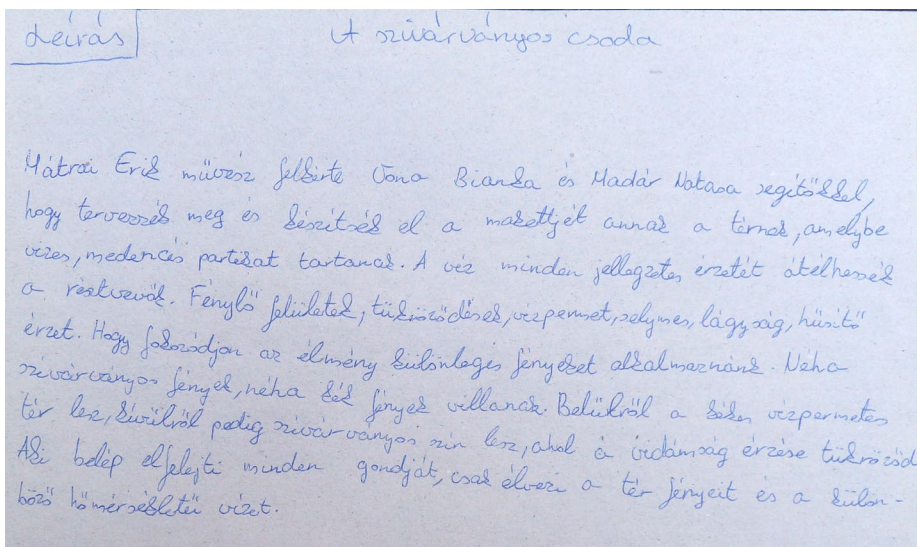 Leírás A szivárványos csoda
Mátrai Erik művész felkérte Vona Bianka és Madár Natasa segítőkkel,
hogy tervezzék meg és készítsék el a makettjét annak a térnek, amelybe
vizes, medencés partikat tartanak. A víz minden jellegzetes érzetét átélhessék
a résztvevők. Fénylő felületek, tükröződések, vízpermet, selymes, lágyság, hűsítő
érzet. Hogy fokozódjon az élmény különleges fényeket alkalmaznánk. Néha
szivárványos fények, néha kék fények villanak. Belülről a kékes vízpermetes
tér lesz, kívülről pedig szivárványos szín lesz, ahol a vidámság érzése tükröződ
Aki belép elfelejti minden gondját, csak élvezi a tér fényeit és a külön-
böző hőmérsékletű vizet.